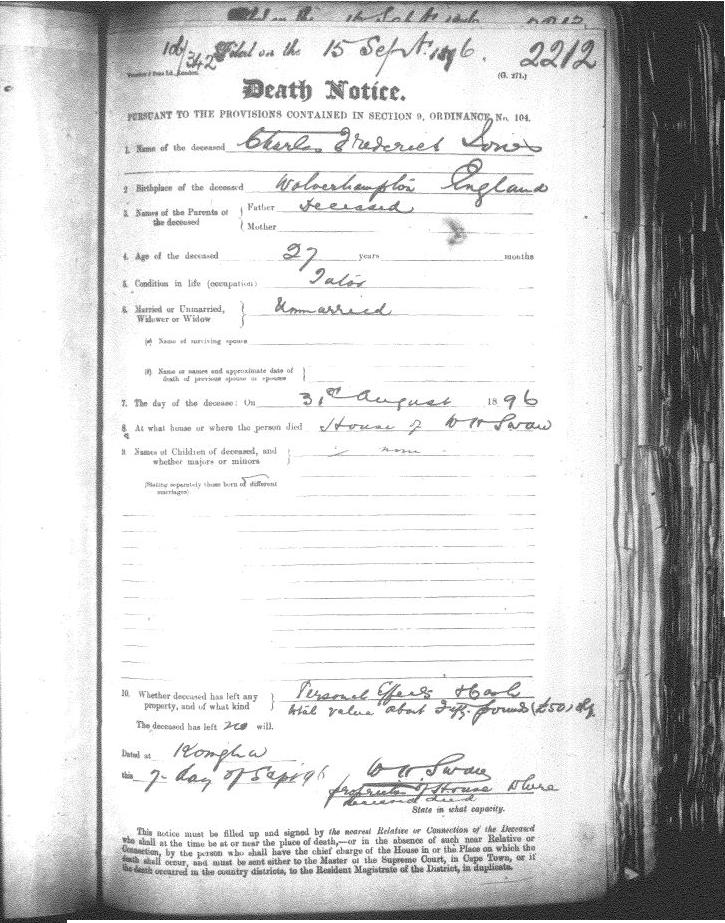 Filed on the 15 Sept. 1896. 2212
(G. 271.)
Death Notice.
PURSUANT TO THE PROVISIONS CONTAINED IN SECTION 9, ORDINANCE, No. 104.
1. Name of the deceased Charles Frederick Jones
2 Birthplace of the deceased Wolverhampton England
3. Names of the Parents of the deceased { Father Deceased
Mother
4. Age of the deceased 27 years months
5. Condition in life (occupation)
6. Married or Unmarried, Widower or Widow } Unmarried
(a) Name of surviving spouse
(b) Name or names and approximate date of death of previous spouse or spouses }
7. The day of the decease: On 31st August 1896
8. At what house or where the person died House of W H Swan
9. Names of Children of deceased, and whether majors or minors } none
(Stating separately those born of different marriages)
10. Whether deceased has left any property, and of what kind } Personal Effects & Cash
total value about Fifty pounds (£50)
The deceased has left no will.
Dated at Komgha
this 7 day of Sept 96
W H Swan
proprietor of House where
deceased died
State in what capacity.
This notice must be filled up and signed by the nearest Relative or Connection of the Deceased
who shall at the time be at or near the place of death,—or in the absence of such near Relative or
Connection, by the person who shall have the chief charge of the House in or the Place on which the
death shall occur, and must be sent either to the Master of the Supreme Court, in Cape Town, or if
the death occurred in the country districts, to the Resident Magistrate of the District, in duplicate.